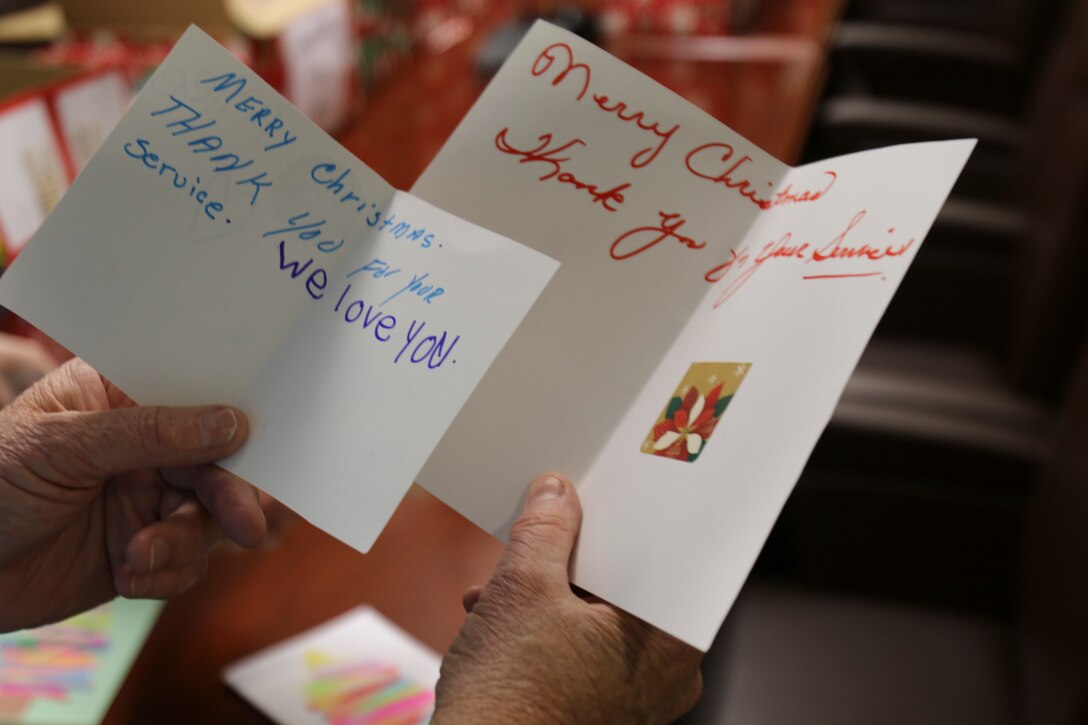 MERRY Christmas.
THANK YOU FOR YOUR
Service.
We love YOU.
Merry Christmas
Thank You for your Service